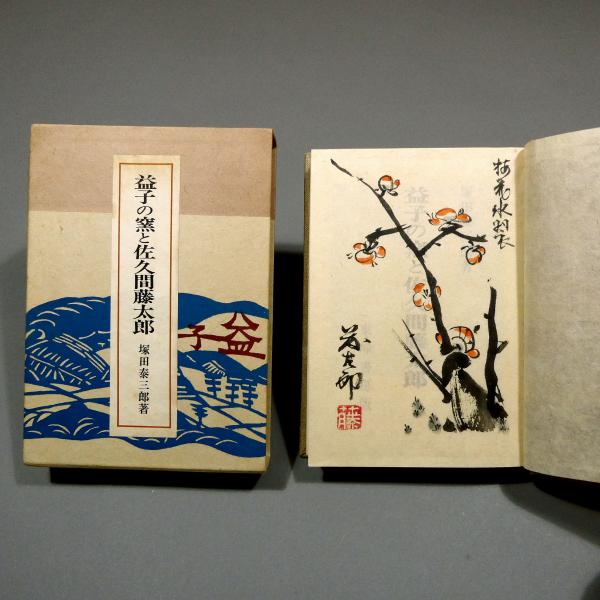 益子の窯と佐久間藤太郎
塚田泰三郎著
益子
藤太郎
藤